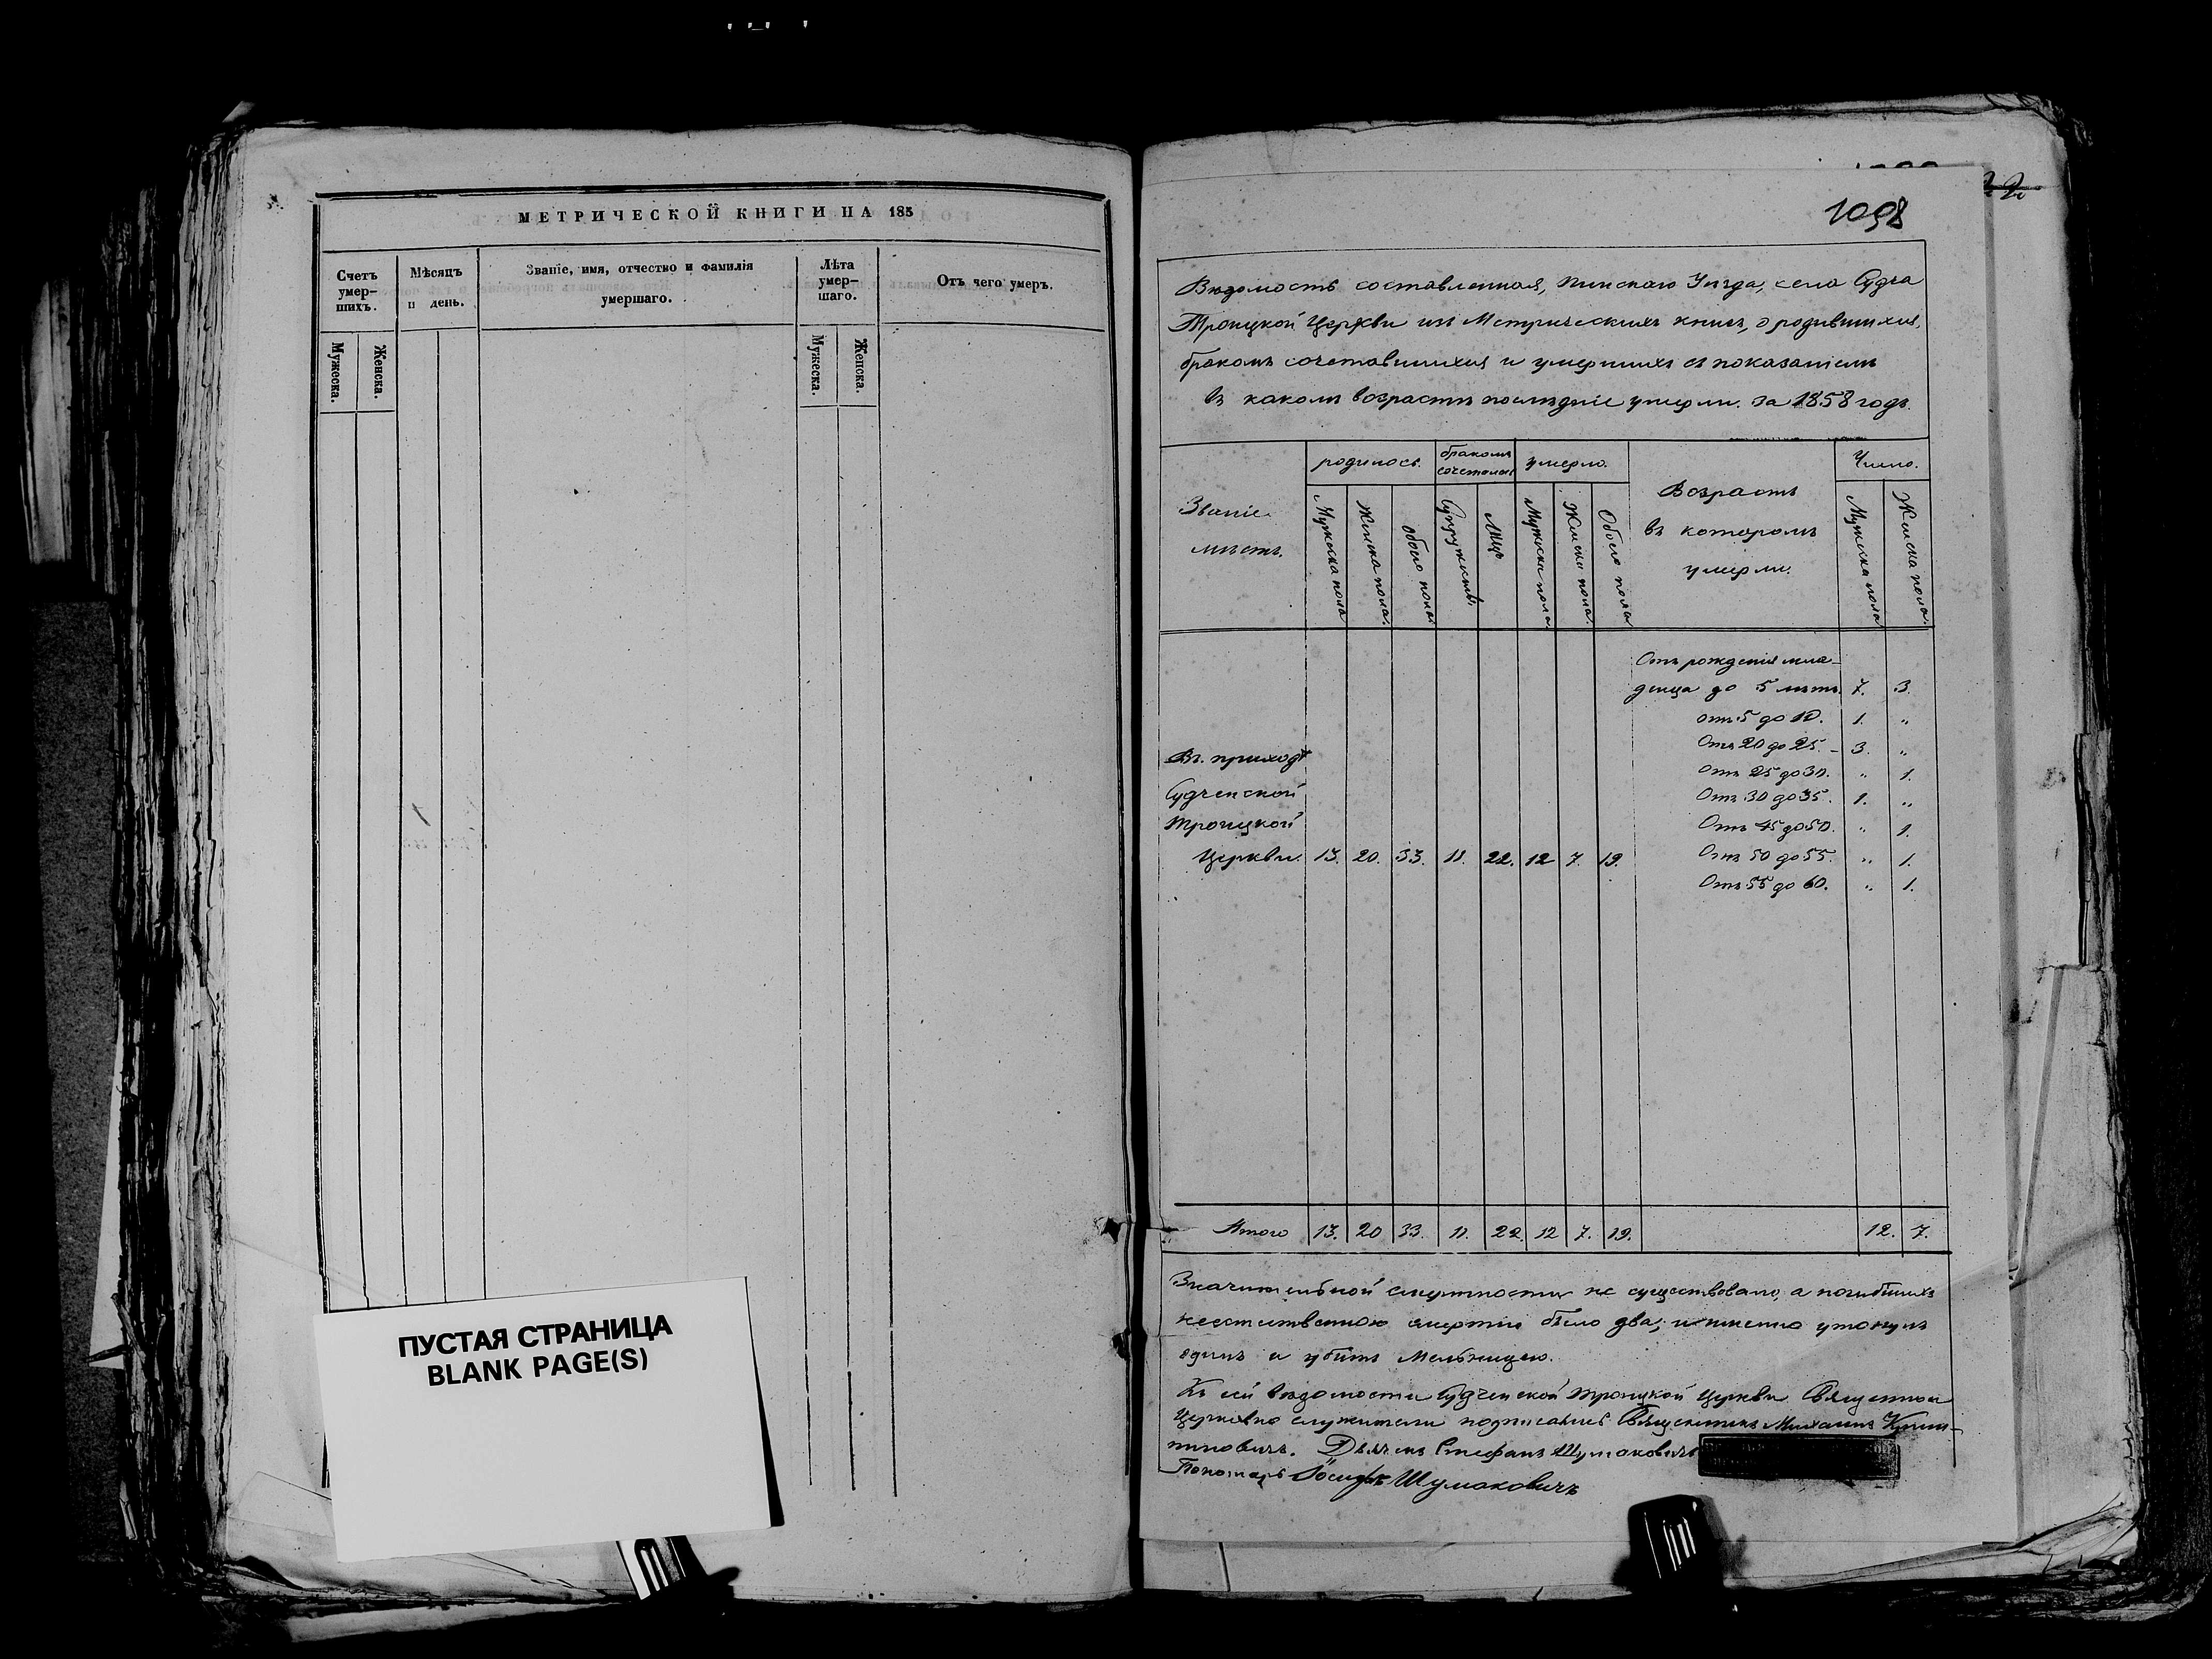 МЕТРИЧЕСКОЙ КНИГИ НА 185
Счетъ умер-шихъ.
Мѣсяцъ и день.
Званіе, имя, отчество и фамилія умершаго.
Лѣта умер-шаго.
Отъ чего умеръ.
Мужеска.
Женска.
Мужеска.
Женска.
ПУСТАЯ СТРАНИЦА
BLANK PAGE(S)
1098
Вѣдомость составленная, Пинскаго Уѣзда, села Судча
Троицкой Церкви изъ Метрическихъ книгъ, о родившихся,
бракомъ сочетавшихся и умершихъ съ показаніемъ
въ какомъ возрастѣ послѣдніе умерли. за 1858 годъ.
Званіе мѣстъ.
родилось.
бракомъ сочеталось
умерло.
Возрастъ
въ которомъ
умерли.
Число.
Мужеска пола
Женска пола.
обоего пола
Супружествъ.
Лицъ
Мужеска пола.
Женска пола.
Обоего пола
Мужеска пола
Женска пола.
Отъ рожденія мла-
денца до 5 лѣтъ. 7. 3.
отъ 5 до 10. 1. „
Отъ 20 до 25. - 3. „
Отъ 25 до 30. „ 1.
Отъ 30 до 35. 1. „
Отъ 45 до 50. „ 1.
Отъ 50 до 55. „ 1.
Отъ 55 до 60. „ 1.
Въ приходѣ
Судченской
Троицкой
Церкви. 13. 20. 33. 11. 22. 12 7. 19.
Итого 13. 20 33. 11. 22. 12 7. 19. 12. 7.
Значительной смертности не существовало, а погибшихъ
неестественною смертію было два; именно утонулъ
одинъ и убитъ Мельницею.
Къ сей вѣдомости Судченской Троицкой Церкви Священно и
Церковно служители подписались Священникъ Михаилъ
Дьячекъ Стефанъ Шумаковичъ
Пономарь Іосифъ Шумаковичъ